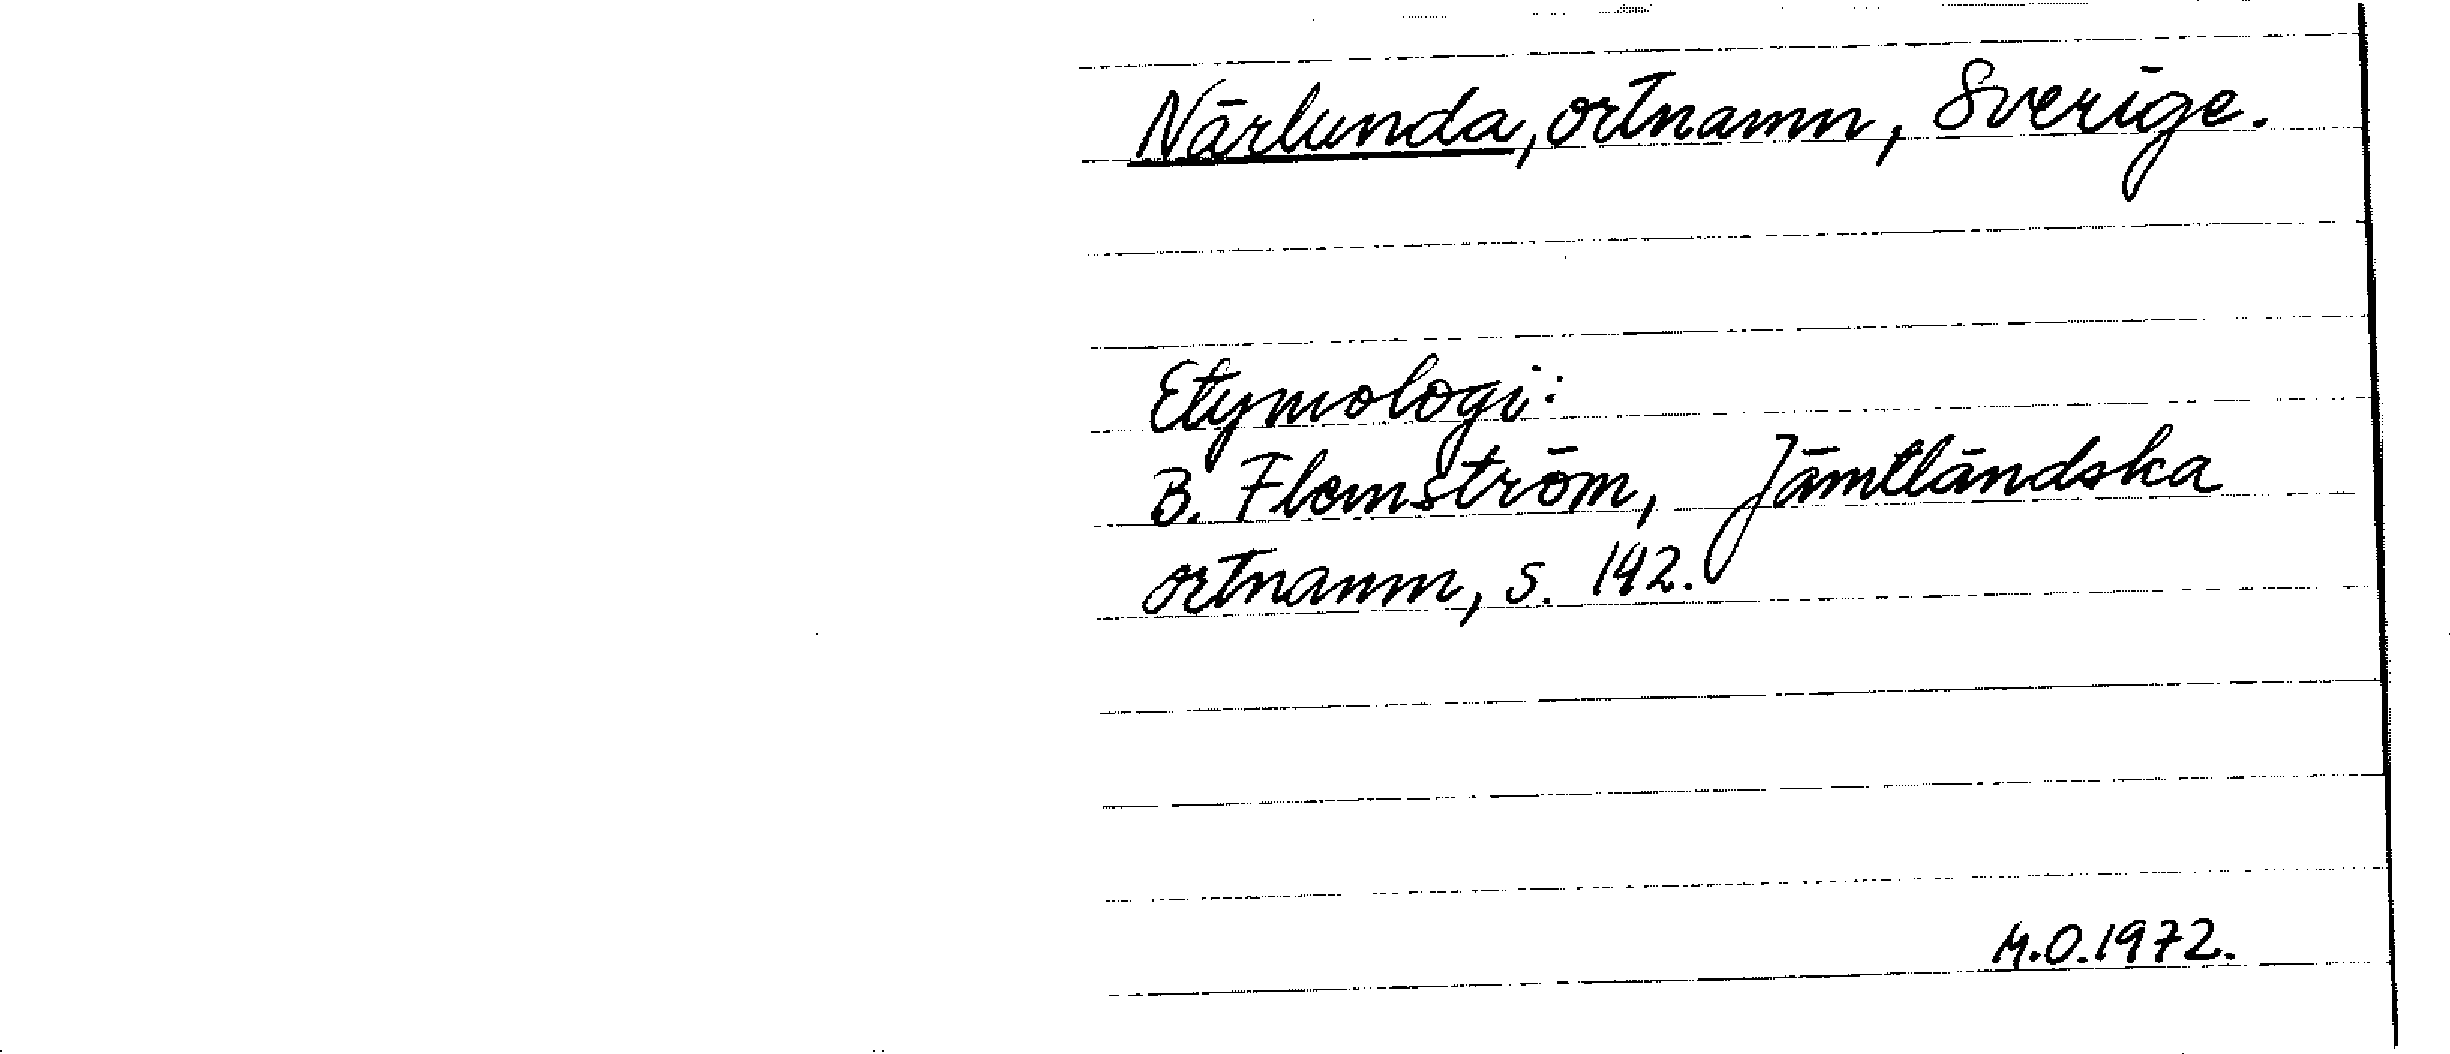 Närlunda, ortnamn, Sverige.
Etymologi:
B. Flemström, Jämtländska
ortnamn, s. 142.
M.O.1972.